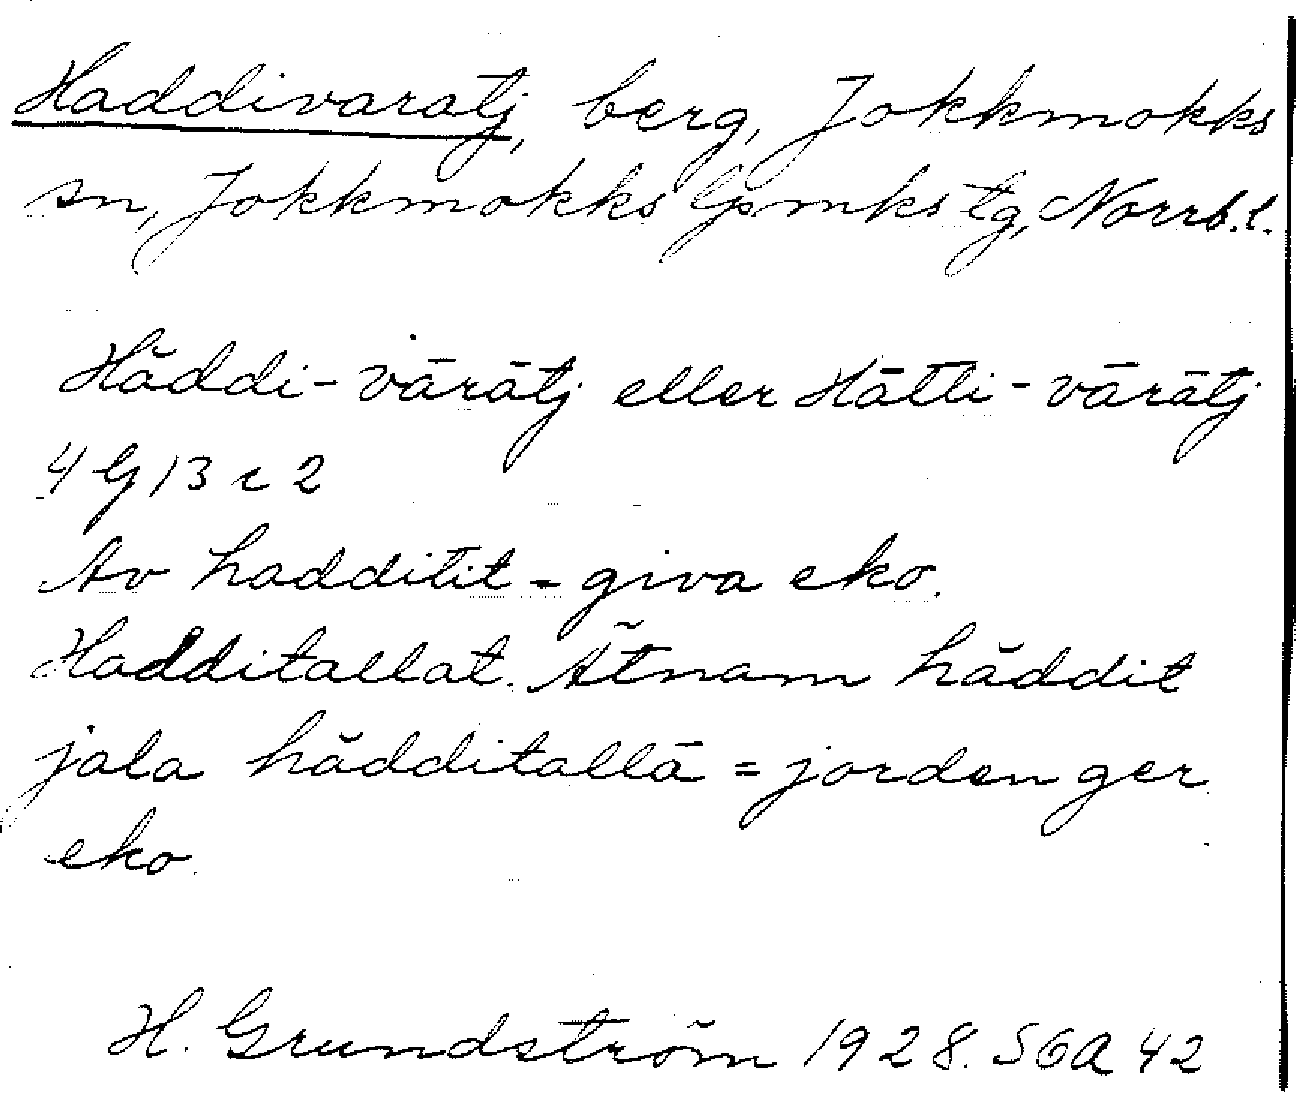 Haddivaratj, berg, Jokkmokks
sn, Jokkmokks lpmks tg, Norrb.l.
Hăddi-vārātj eller Hātti-vārātj
4 G 13 c 2
Av hadditit = giva eko.
Hadditallat. Ātnam hăddit
jala hădditallā = jorden ger
eko.
H. Grundström 1928. SGA 42